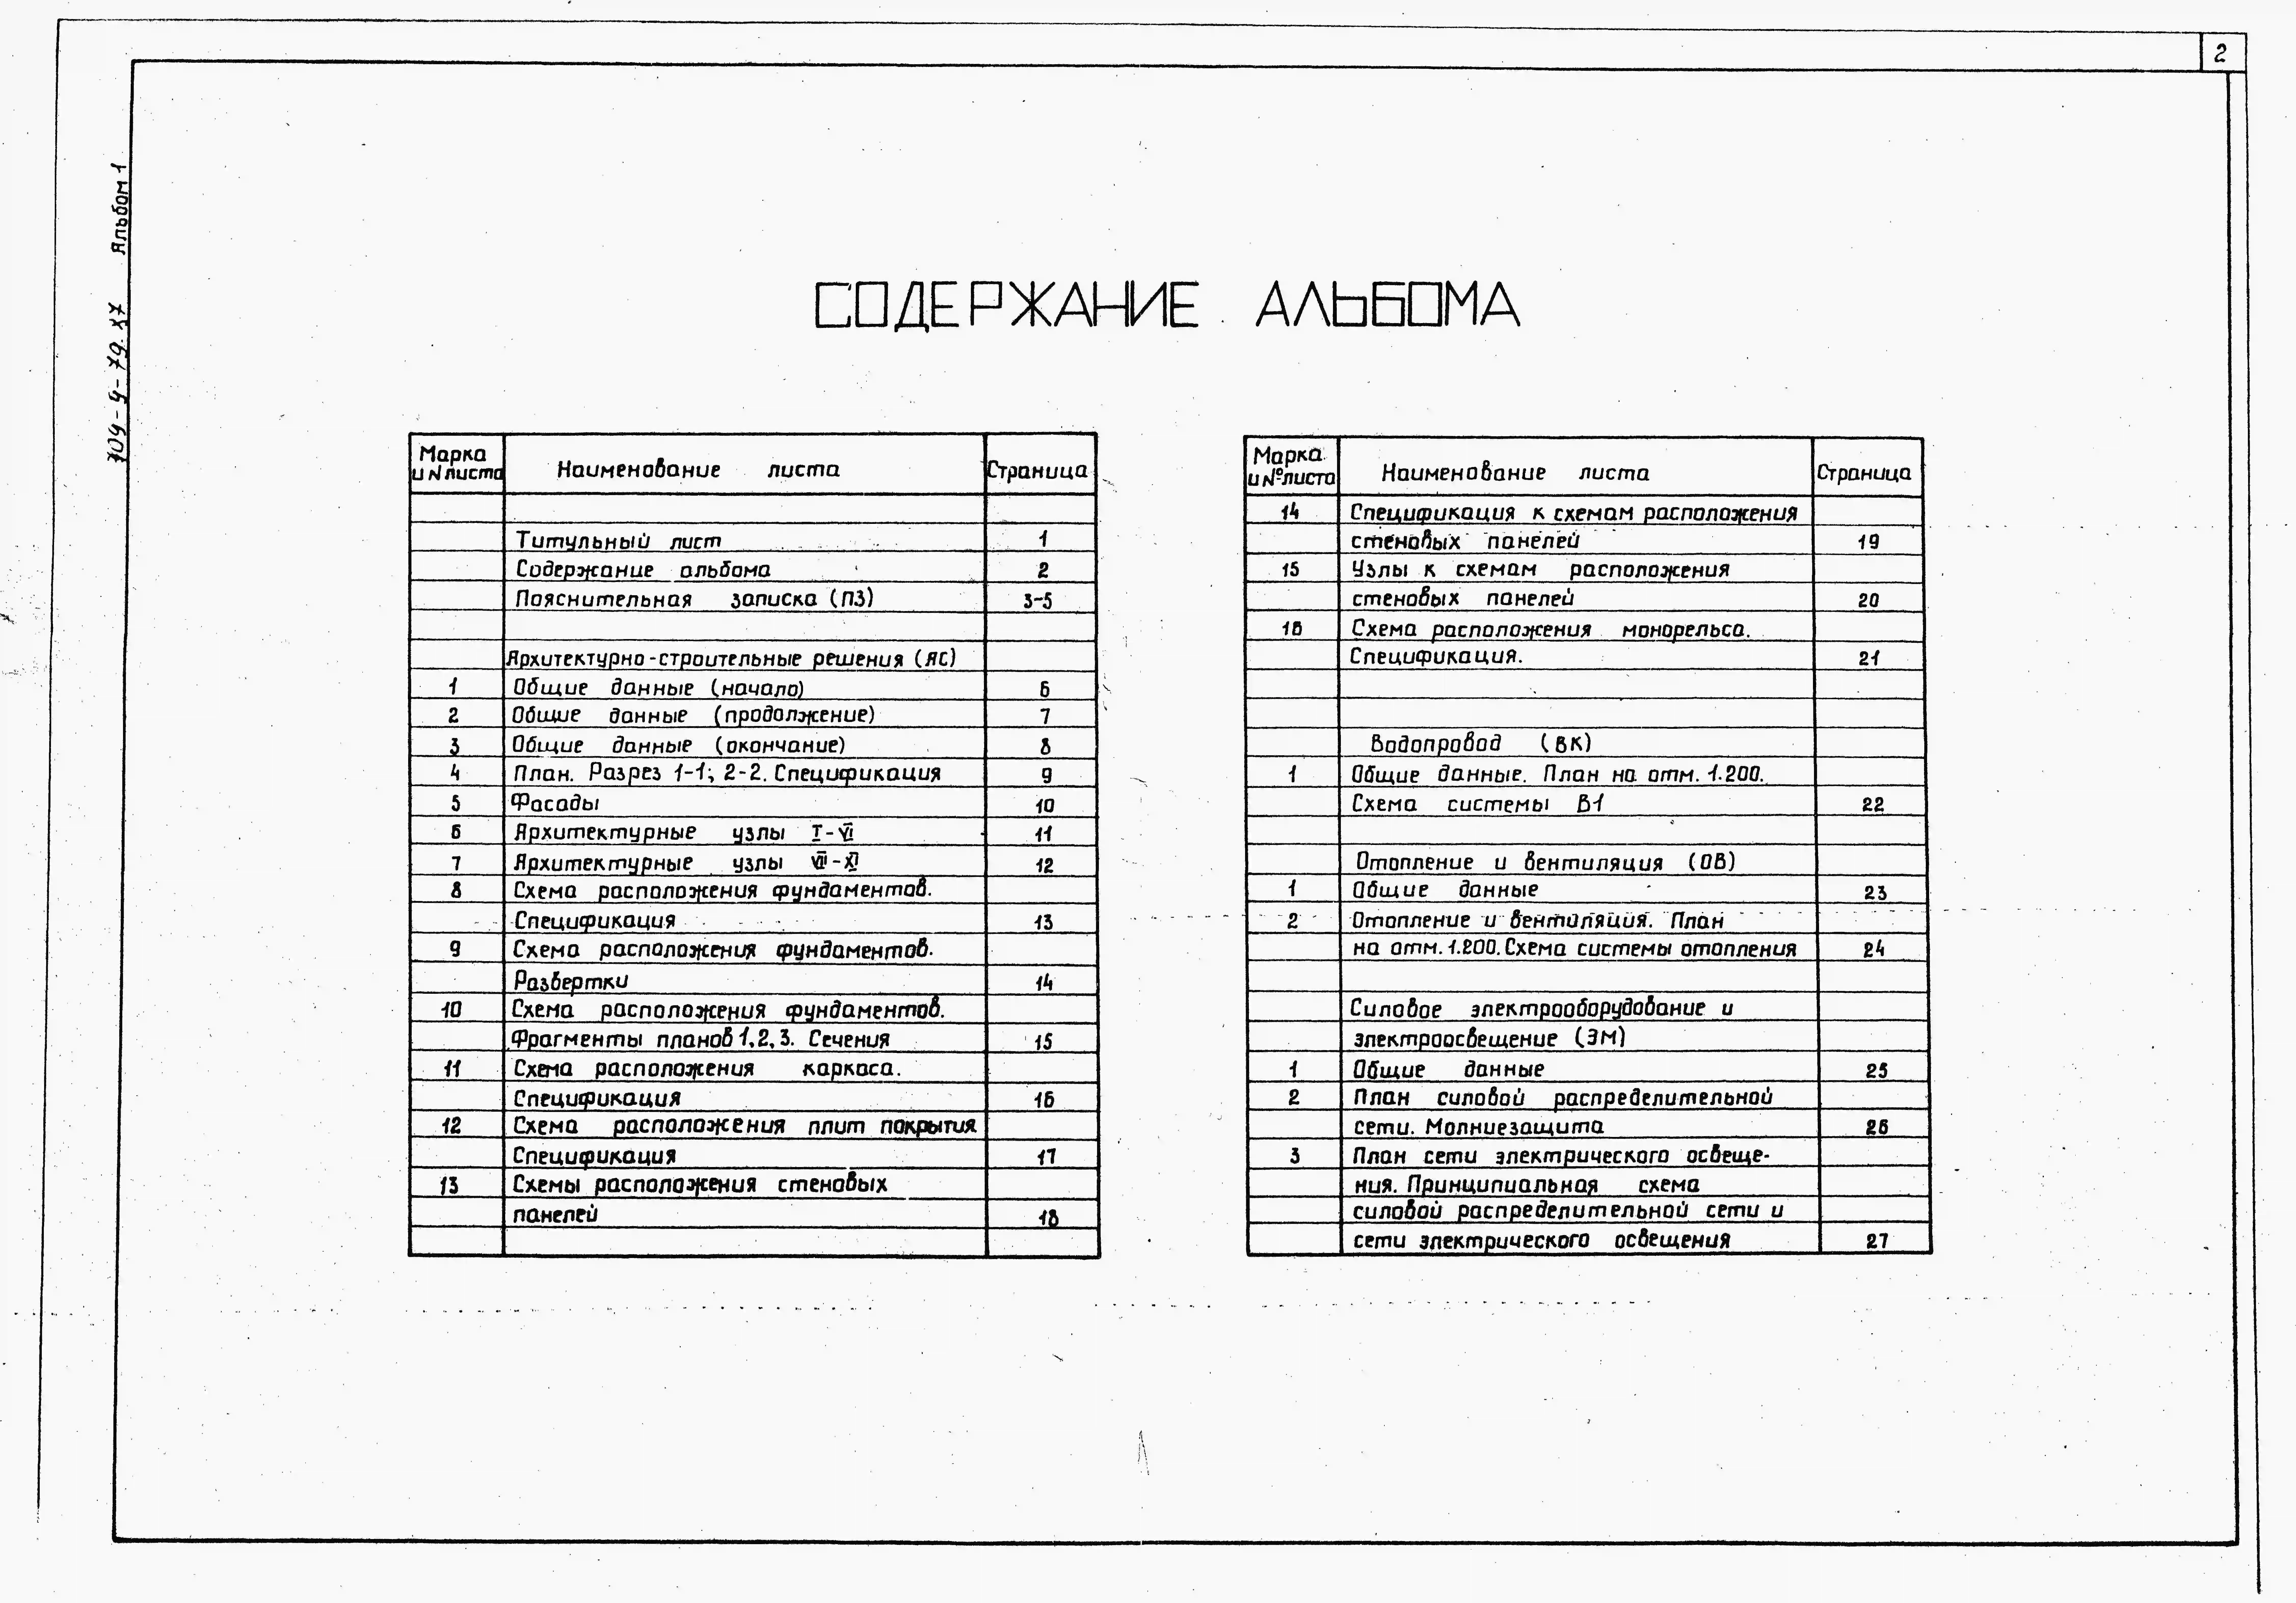 2
709-9-79.87 Альбом 1
СОДЕРЖАНИЕ АЛЬБОМА
Марка и N листа Наименование листа Страница
Титульный лист 1
Содержание альбома 2
Пояснительная записка (ПЗ) 3-5
Архитектурно-строительные решения (АС)
1 Общие данные (начало) 6
2 Общие данные (продолжение) 7
3 Общие данные (окончание) 8
4 План. Разрез 1-1; 2-2. Спецификация 9
5 Фасады 10
6 Архитектурные узлы I-VI 11
7 Архитектурные узлы VII-XI 12
8 Схема расположения фундаментов.
Спецификация 13
9 Схема расположения фундаментов.
Развертки 14
10 Схема расположения фундаментов.
Фрагменты планов 1,2,3. Сечения 15
11 Схема расположения каркаса.
Спецификация 16
12 Схема расположения плит покрытия
Спецификация 17
13 Схемы расположения стеновых
панелей 18
Марка и №листа Наименование листа Страница
14 Спецификация к схемам расположения
стеновых панелей 19
15 Узлы к схемам расположения
стеновых панелей 20
16 Схема расположения монорельса.
Спецификация. 21
Водопровод (ВК)
1 Общие данные. План на отм. 1.200.
Схема системы В1 22
Отопление и вентиляция (ОВ)
1 Общие данные 23
2 Отопление и вентиляция. План
на отм. 1.200. Схема системы отопления 24
Силовое электрооборудование и
электроосвещение (ЭМ)
1 Общие данные 25
2 План силовой распределительной
сети. Молниезащита 26
3 План сети электрического освеще-
ния. Принципиальная схема
силовой распределительной сети и
сети электрического освещения 27